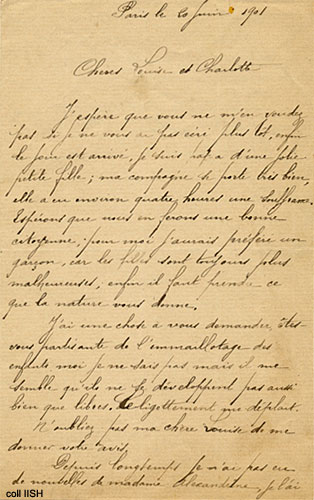 Paris le 20 Juin 1901
Cheres Louise et Charlotte
J'espère que vous ne m'en voudez
pas si je ne vous ai pas écri plus tôt, enfin
le jour est arrivé, je suis papa d'une jolie
petite fille; ma compagne se porte très bien,
elle a eu environ quatre heures une souffrance.
Espérons que nous en ferons une bonne
citoyenne; pour moi j'aurais préféré un
garçon, car les filles sont toujours plus
malheureuses, enfin il faut prendre ce
que la nature vous donne.
J'ai une chose à vous demander, êtes-
vous partisante de l'emmaillotage des
enfants moi je ne sais pas mais il me
semble qu'ils ne se développent pas aussi
bien que libres. Ce ligottement me deplait.
N'oubliez pas ma chère Louise de me
donner votre avis.
Depuis longtemps je n'ai pas eu
de nouvelles de madame Alexandrine, je l'ai
coll IISH